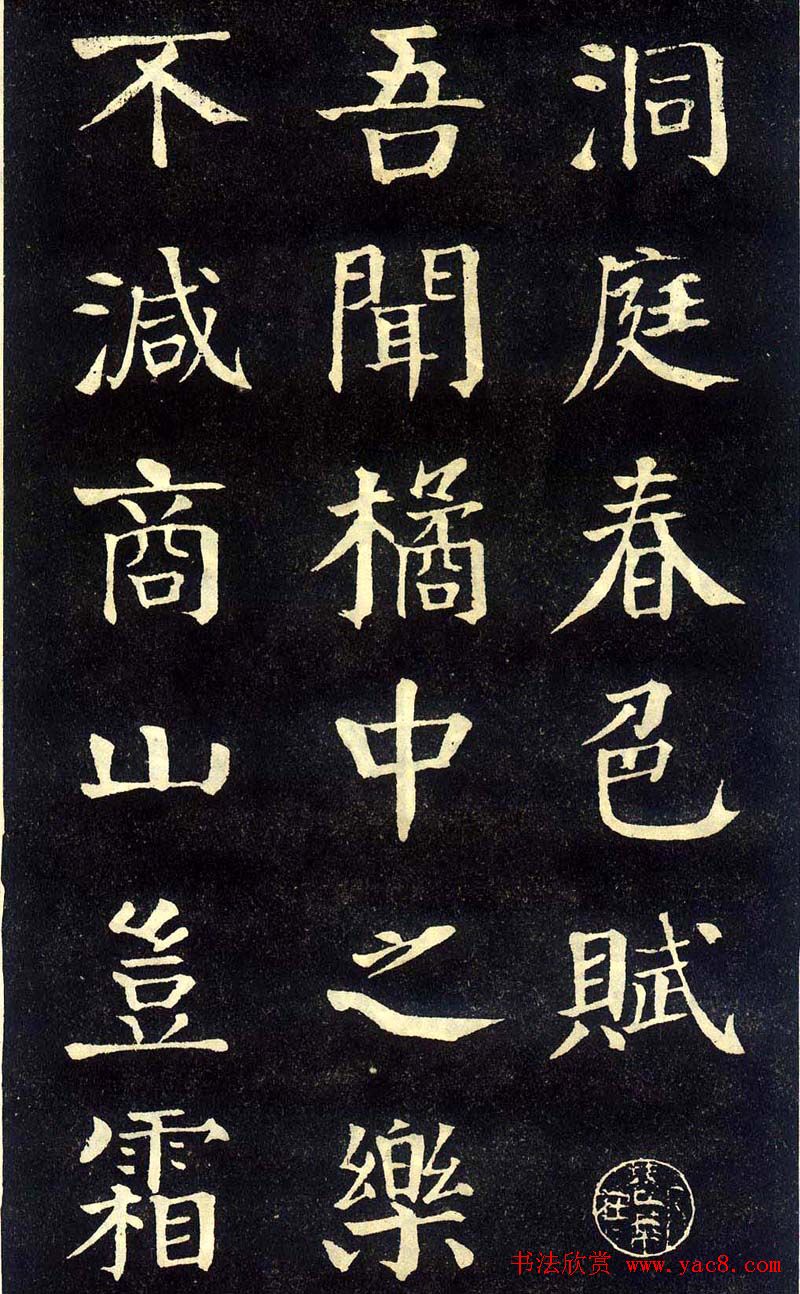 洞庭春色賦
吾聞橘中之樂
不減商山豈霜
书法欣赏 www.yac8.com